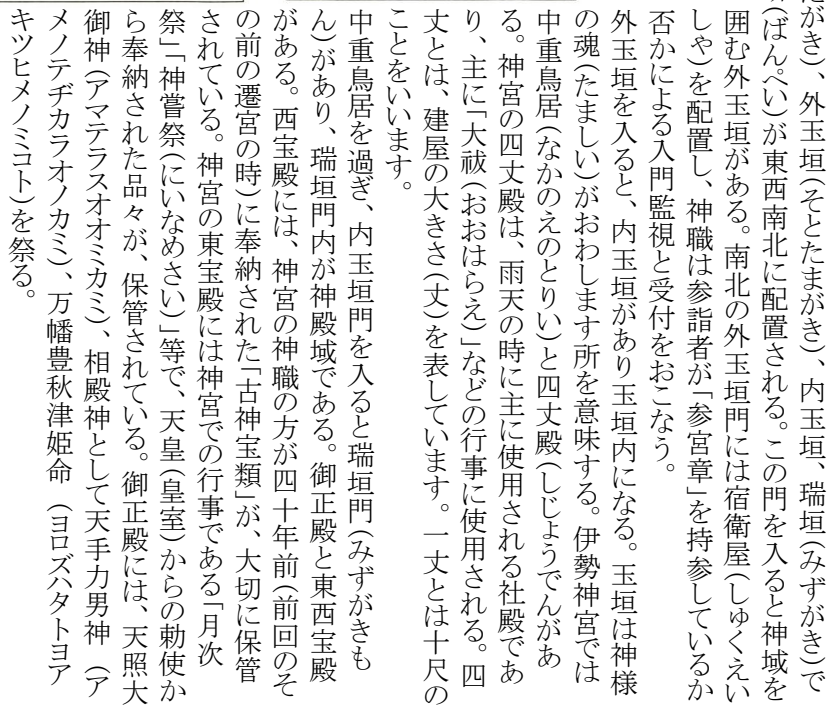 がき)、外玉垣(そとたまがき)、内玉垣、瑞垣(みずがき)で
(ばんぺい)が東西南北に配置される。この門を入ると神域を
囲む外玉垣がある。南北の外玉垣門には宿衛屋(しゅくえい
しゃ)を配置し、神職は参詣者が「参宮章」を持参しているか
否かによる入門監視と受付をおこなう。
外玉垣を入ると、内玉垣があり玉垣内になる。玉垣は神様
の魂(たましい)がおわします所を意味する。伊勢神宮では
中重鳥居(なかのえのとりい)と四丈殿(しじょうでんがあ
る。神宮の四丈殿は、雨天の時に主に使用される社殿であ
り、主に「大祓(おおはらえ)」などの行事に使用される。四
丈とは、建屋の大きさ(丈)を表しています。一丈とは十尺の
ことをいいます。
中重鳥居を過ぎ、内玉垣門を入ると瑞垣門(みずがきも
ん)があり、瑞垣門内が神殿域である。御正殿と東西宝殿
がある。西宝殿には、神宮の神職の方が四十年前(前回のそ
の前の遷宮の時)に奉納された「古神宝類」が、大切に保管
されている。神宮の東宝殿には神宮での行事である「月次
祭」「神嘗祭(にいなめさい)」等で、天皇(皇室)からの勅使か
ら奉納された品々が、保管されている。御正殿には、天照大
御神(アマテラスオオミカミ)、相殿神として天手力男神 (ア
メノテヂカラオノカミ)、万幡豊秋津姫命 (ヨロズハタトヨア
キツヒメノミコト)を祭る。